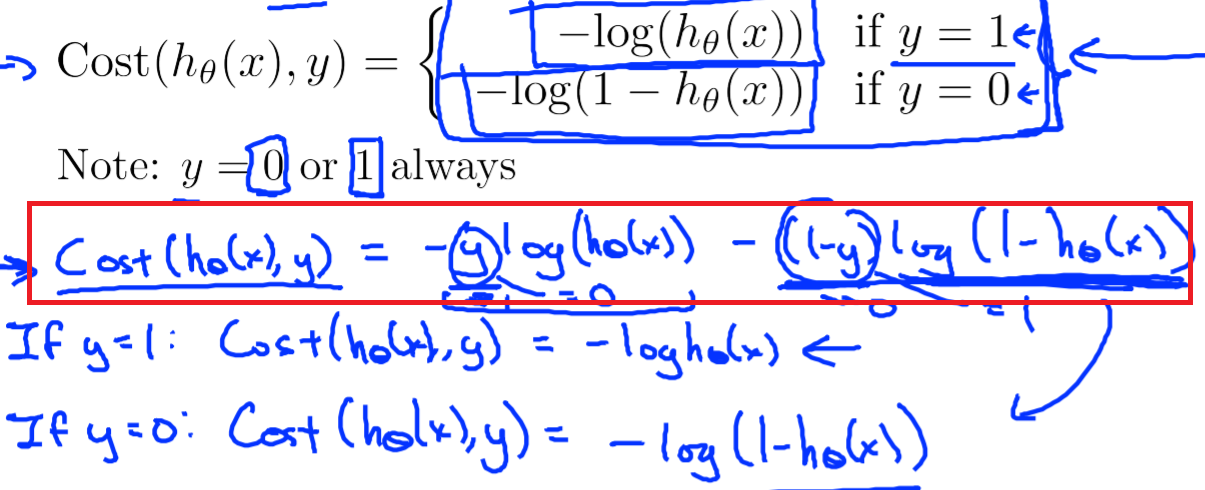 → Cost(hθ(x), y) = { −log(hθ(x)) if y = 1 ←
−log(1 − hθ(x)) if y = 0 ←
Note: y = 0 or 1 always
→ Cost(hθ(x), y) = -y log(hθ(x)) - (1-y) log(1-hθ(x))
=1 =0 =0 =1
If y=1: Cost(hθ(x), y) = -log hθ(x) ←
If y=0: Cost(hθ(x), y) = -log(1-hθ(x))